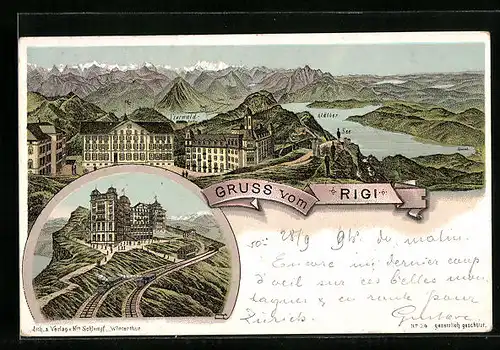 Vierwald-
stätter
See
GRUSS vom RIGI
28/9 9h. du matin.
Encore un dernier coup
d'oeil sur ces belles mon
tagnes & en route pour
Zürich.
Gustave
Lith. & Verlag v. Wm Schlumpf, Winterthur
No 36 gesetzlich geschützt.